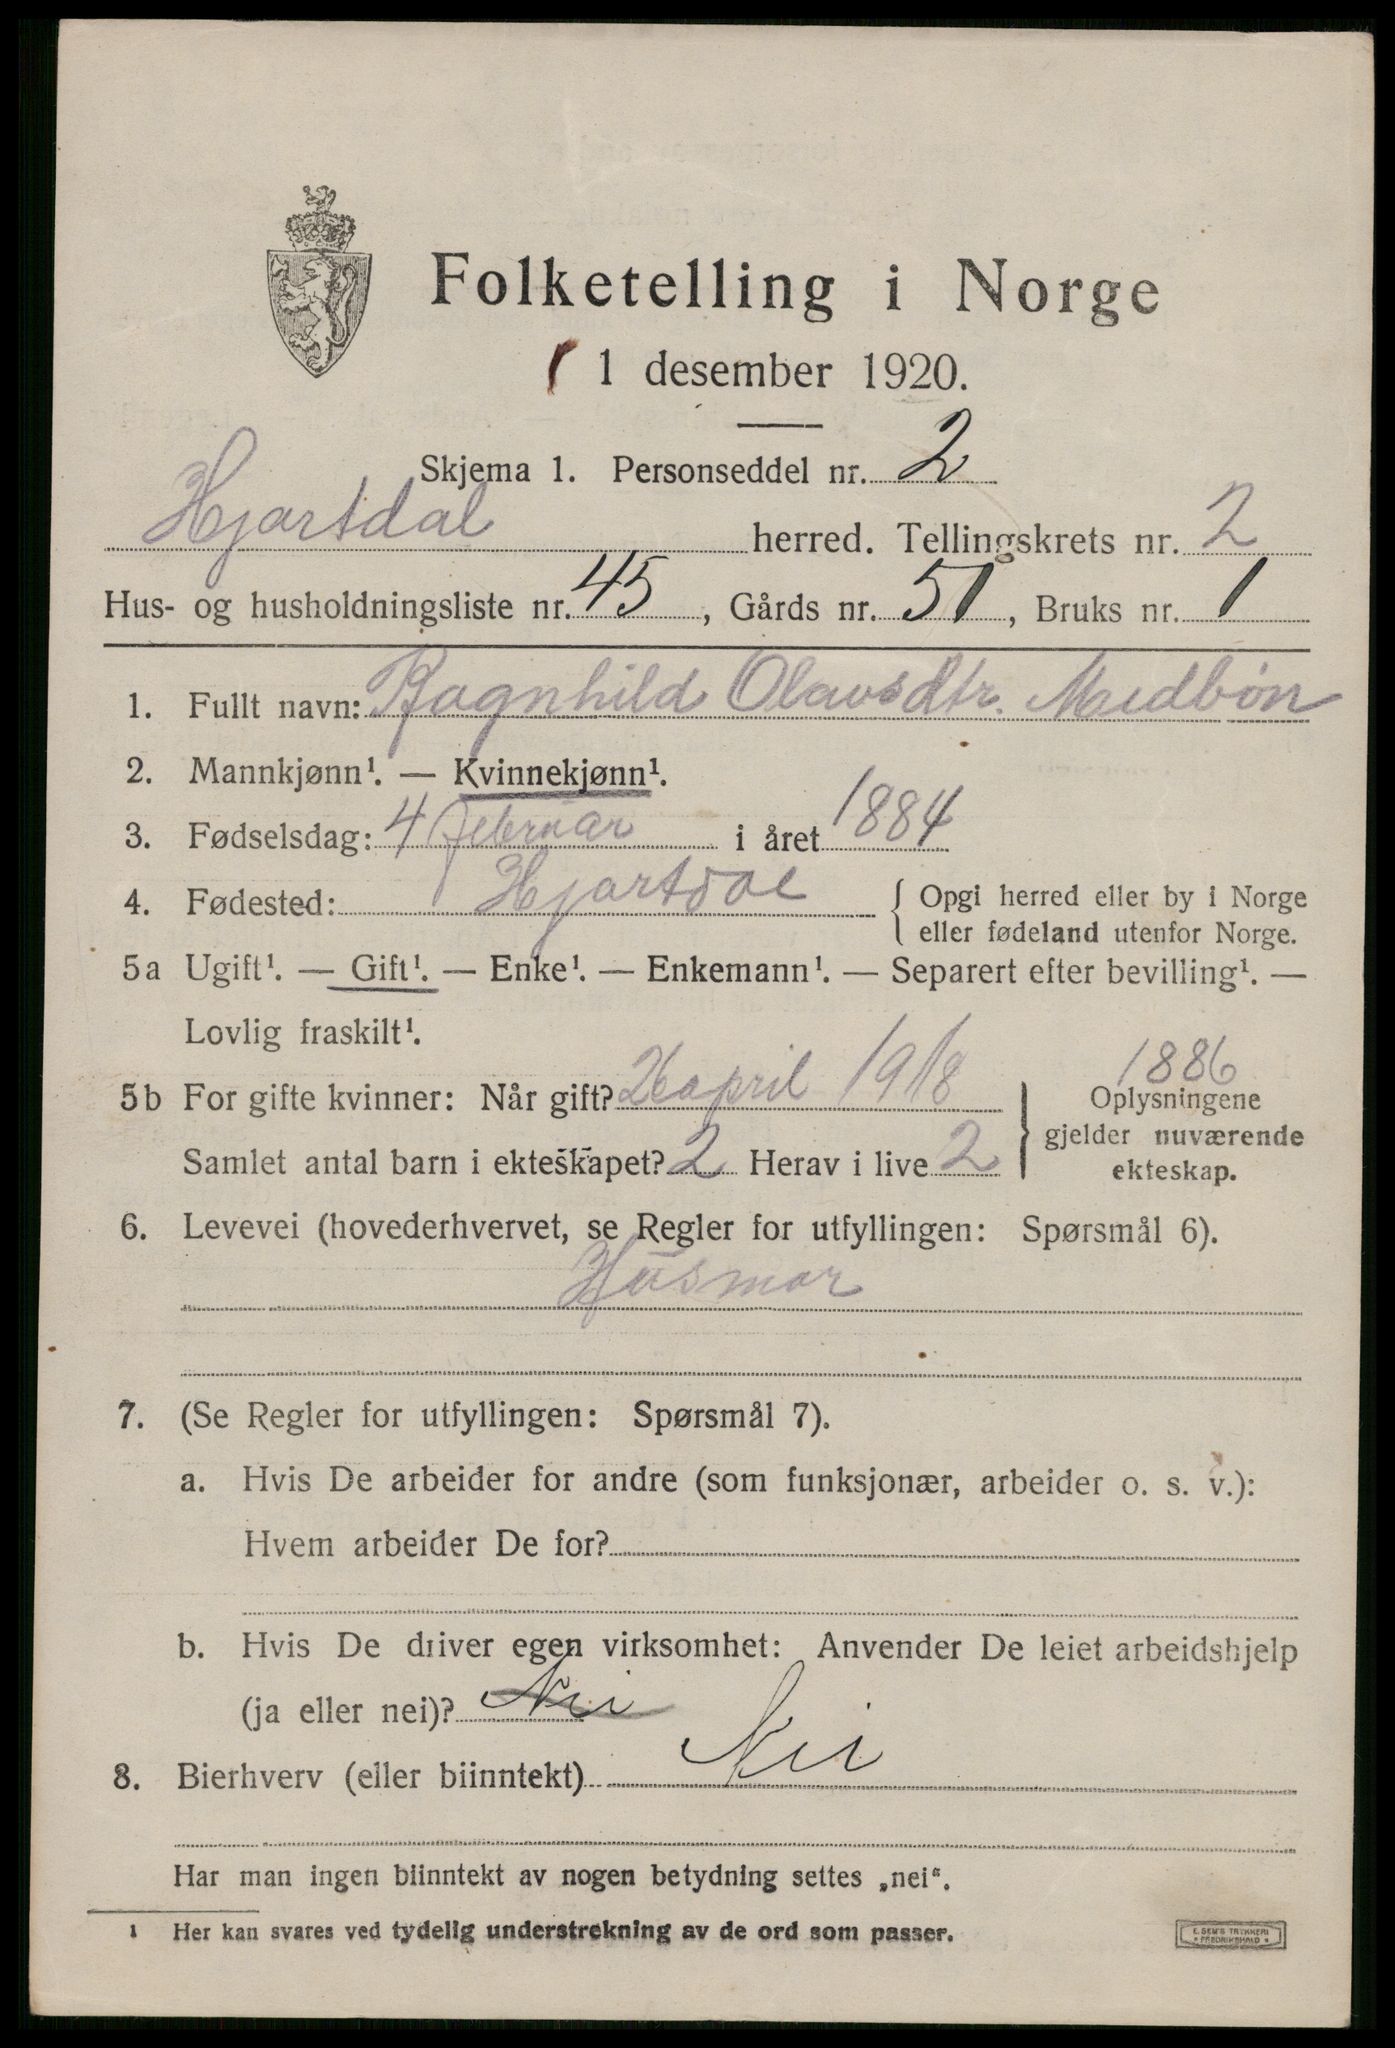 Folketelling i Norge
1 desember 1920.
Skjema 1. Personseddel nr. 2
Hjartdal herred. Tellingskrets nr. 2
Hus- og husholdningsliste nr. 45, Gårds nr. 51, Bruks nr. 1
1. Fullt navn: Ragnhild Olavsdtr. Mædbøn
2. Mannkjønn¹. — Kvinnekjønn¹.
3. Fødselsdag: 4 februar i året 1884
4. Fødested: Hjartdal { Opgi herred eller by i Norge
eller fødeland utenfor Norge.
5a Ugift¹. — Gift¹. — Enke¹. — Enkemann¹. — Separert efter bevilling¹. —
Lovlig fraskilt¹.
1886
5b For gifte kvinner: Når gift? 26 april 1918 } Oplysningene
gjelder nuværende
Samlet antal barn i ekteskapet? 2 Herav i live 2
ekteskap.
6. Levevei (hovederhvervet, se Regler for utfyllingen: Spørsmål 6).
Husmor
7. (Se Regler for utfyllingen: Spørsmål 7).
a. Hvis De arbeider for andre (som funksjonær, arbeider o. s. v.):
Hvem arbeider De for?
b. Hvis De driver egen virksomhet: Anvender De leiet arbeidshjelp
(ja eller nei)? Nei
8. Bierhverv (eller biinntekt) Nei
Har man ingen biinntekt av nogen betydning settes „nei“.
1 Her kan svares ved tydelig understrekning av de ord som passer.
E. SEM'S TRYKKERI
• FREDRIKSHALD •